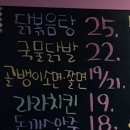 닭볶음탕 25.
국물닭발 22.
골뱅이소면.쫄면 19/21.
라라치킨 19.
18.